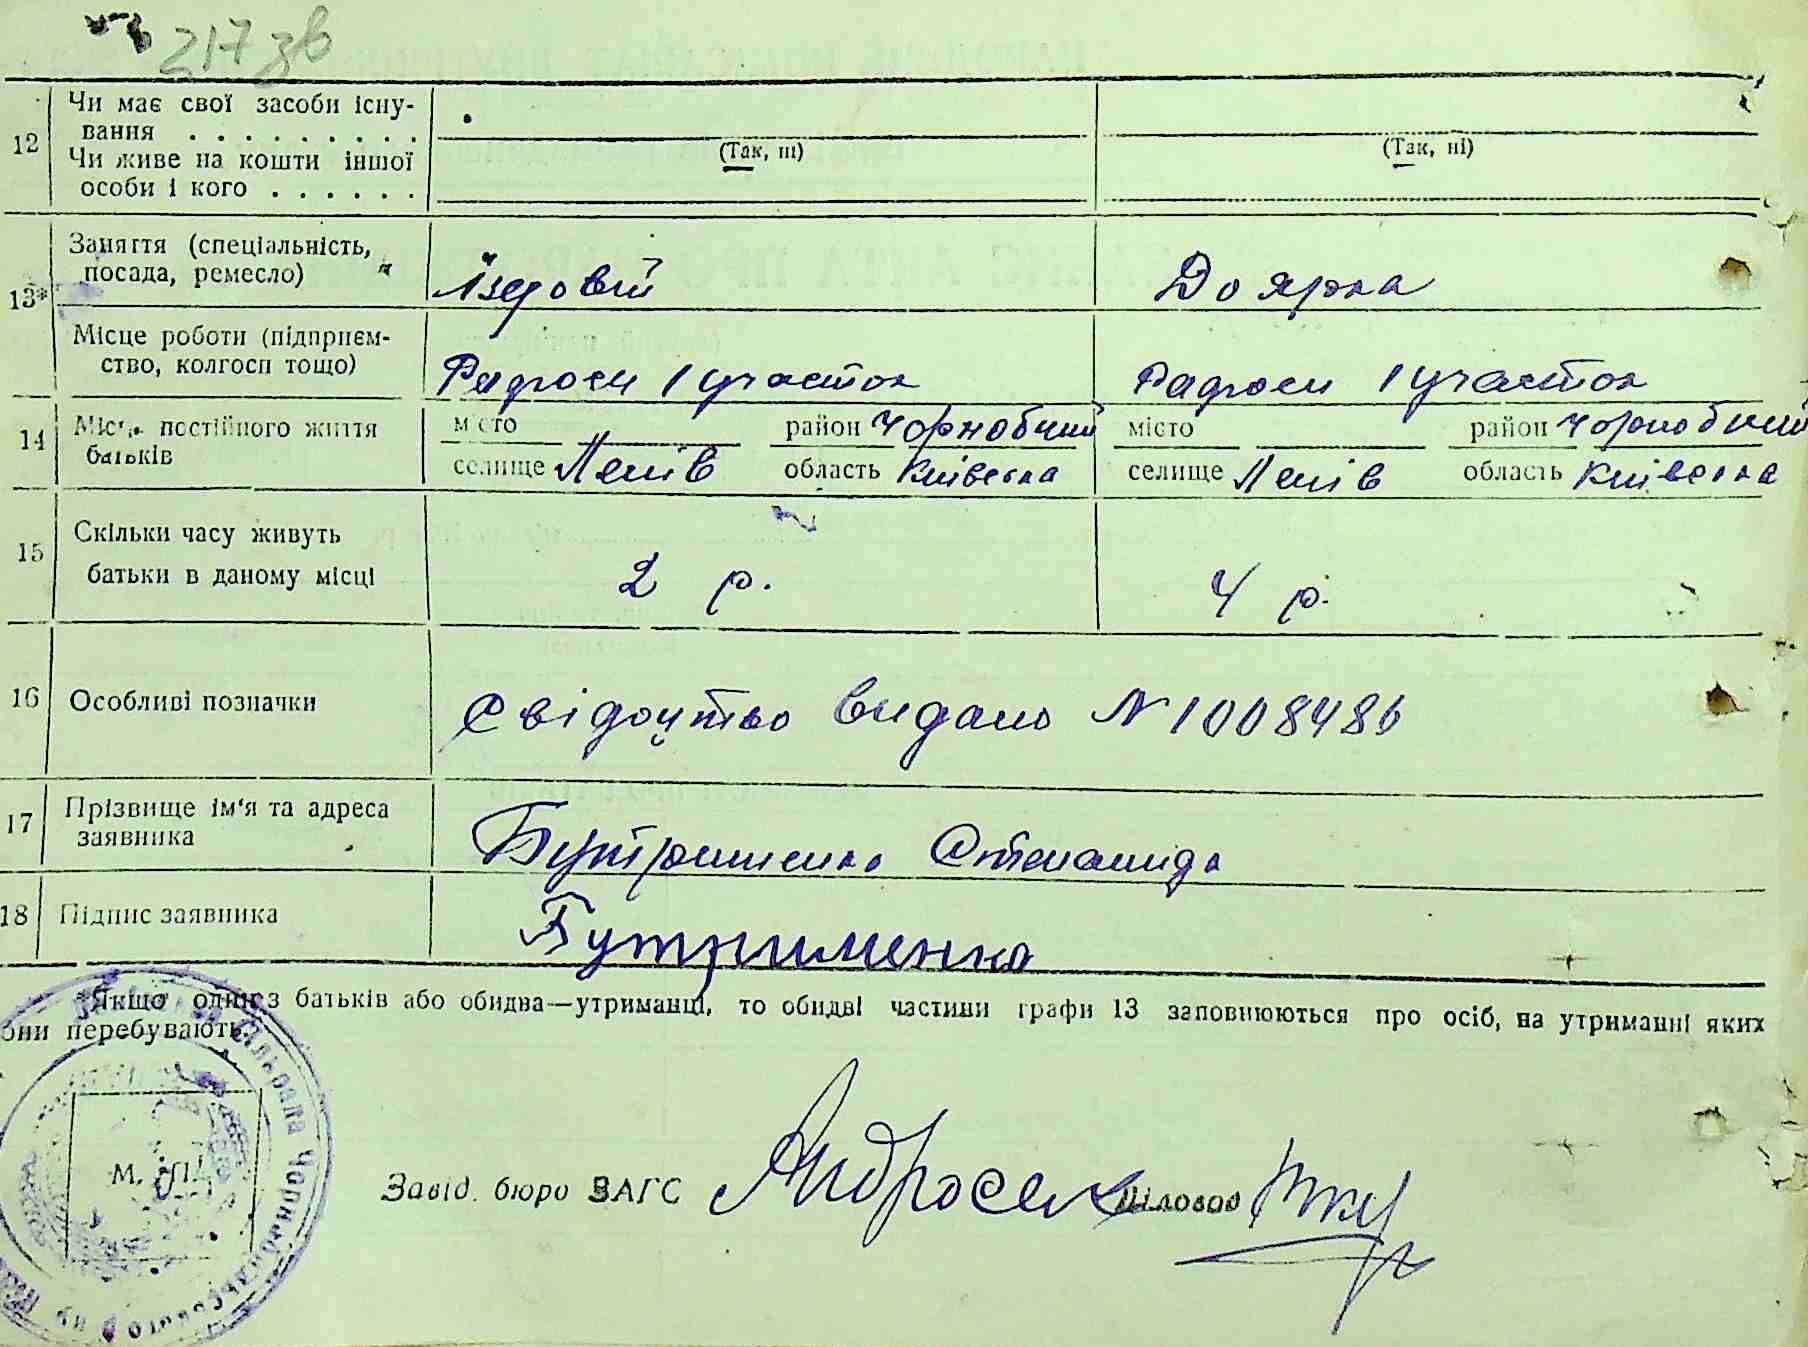 217 зв
12 Чи має свої засоби існу-
вання . . . . . . . . . .
(Так, ні) (Так, ні)
Чи живе на кошти іншої
особи і кого . . . . . .
13* Заняття (спеціальність,
посада, ремесло) Їздовій Доярка
Місце роботи (підприєм-
ство, колгосп тощо) Радгосп 1 участок Радгосп 1 участок
14 Місце постійного життя
батьків
місто район Чорнобчий місто район Чорнобчий
селище Лелів область Київська селище Лелів область Київська
15 Скільки часу живуть
батьки в даному місці 2 р. 4 р.
16 Особливі позначки Свідоцтво видано N 1008486
17 Прізвище ім'я та адреса
заявника Бутрименко Степанида
18 Підпис заявника Бутрименко
*Якщо один з батьків або обидва—утриманці, то обидві частини графи 13 заповнюються про осіб, на утриманні яких
вони перебувають.
сільрада Чорнобильського р-ну
М. П.
Завід. бюро ЗАГС Андросек Діловод